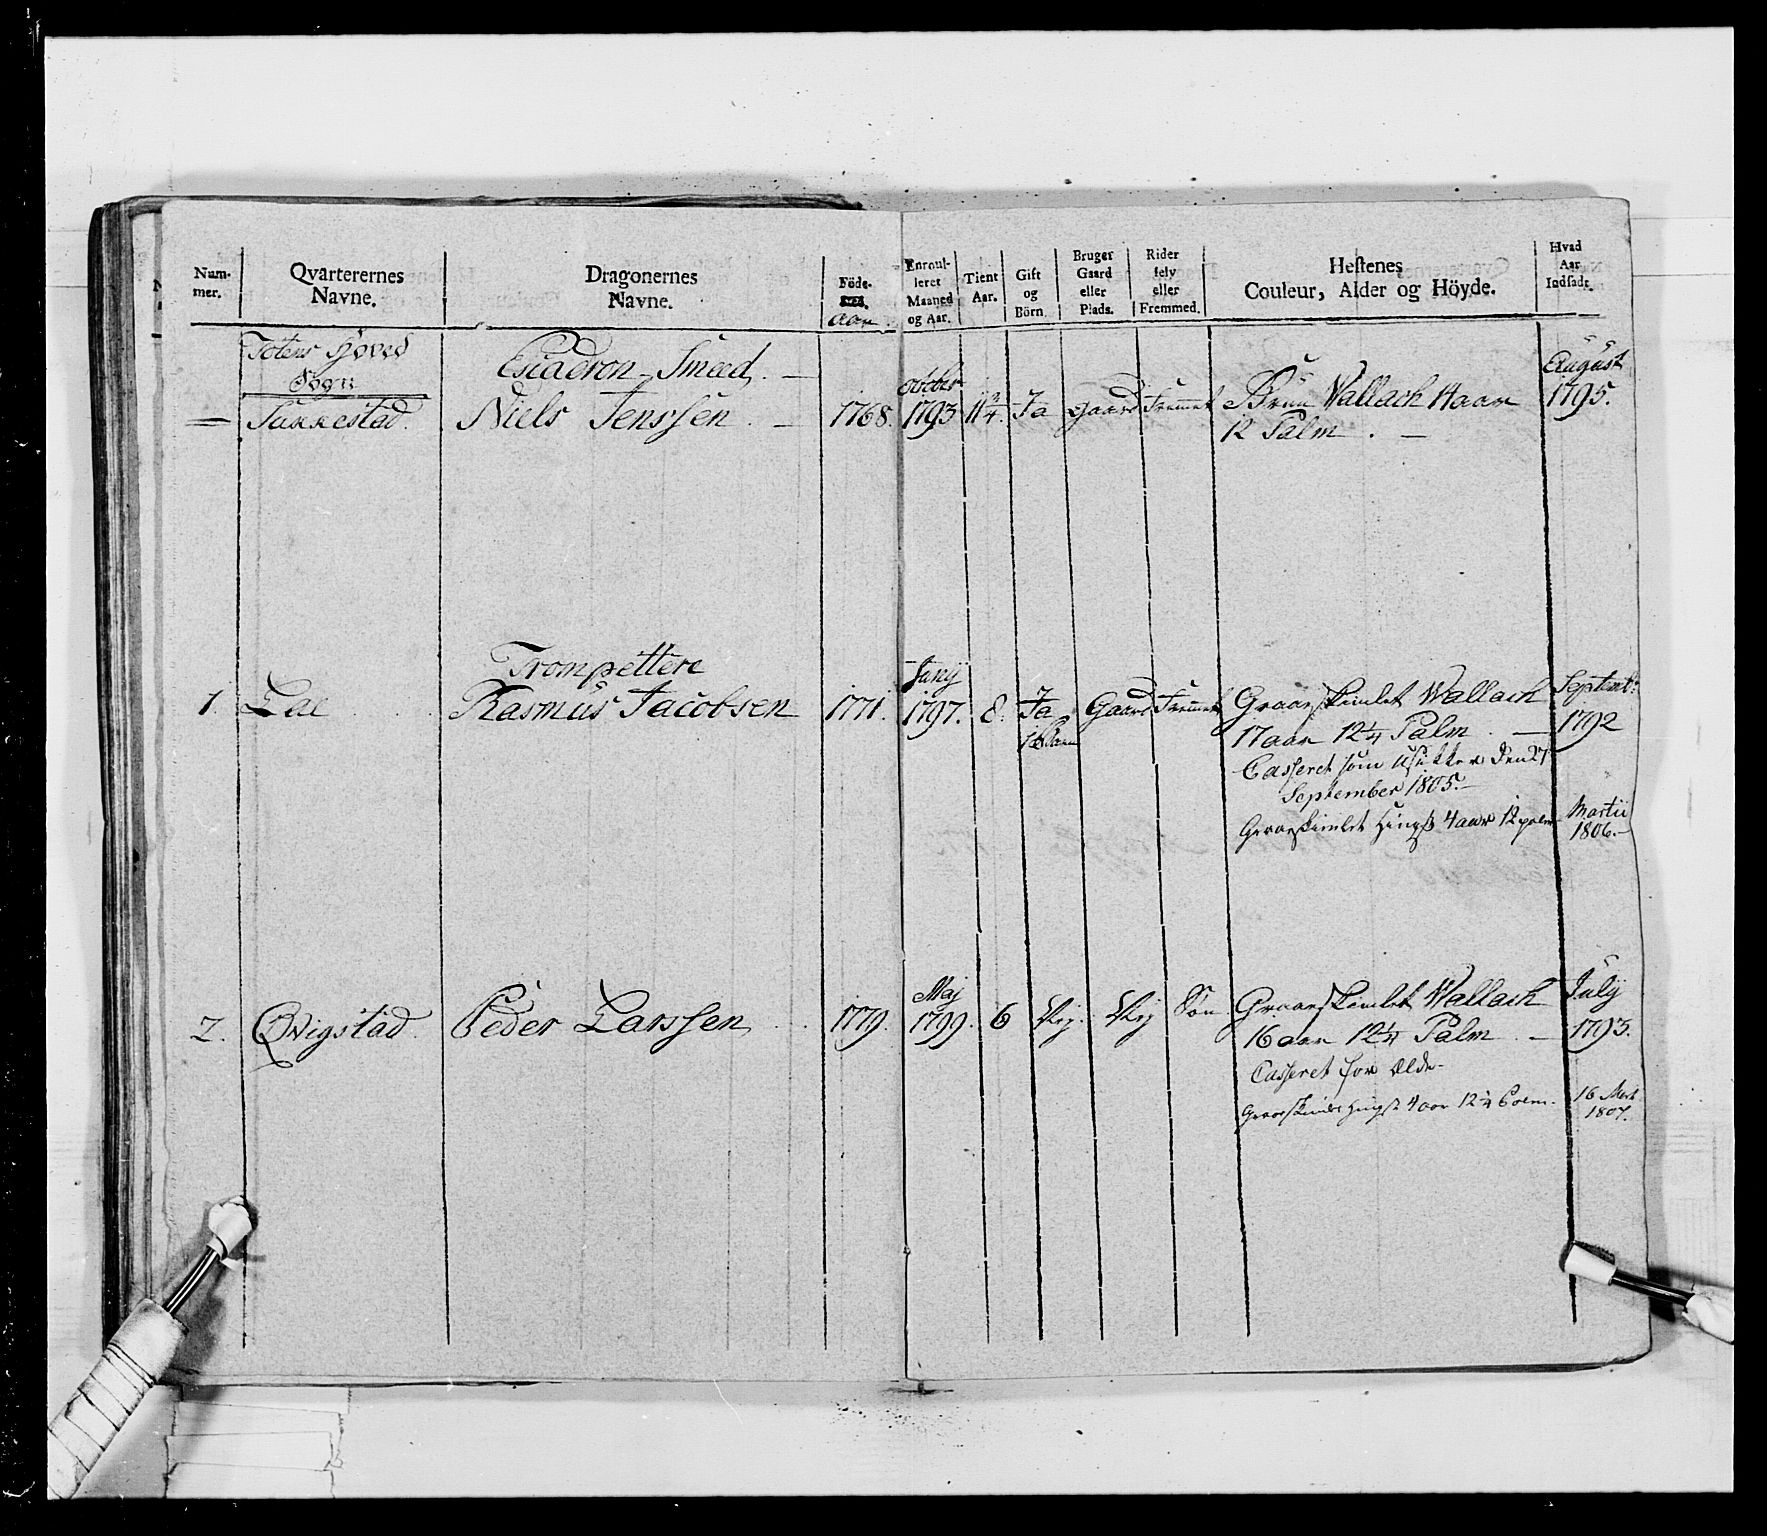 Num-
mer.
Qvarterernes
Navne.
Dragonernes
Navne.
Föde-
Aar
Enroul-
leret
Maaned
og Aar.
Tient
Aar.
Gift
og
Börn.
Bruger
Gaard
eller
Plads.
Rider
selv
eller
Fremmed.
Hestenes
Couleur, Alder og Höyde.
Hvad
Aar
Indsadt.
Totens Hoved
Sogn
Escadron-Smed. —
— Sukkestad. Niels Jenssen. — 1768. October 1793 11 3/4. Ja Gaard Fremmet Bruun Wallach 14 aar August 1795.
12 Palm. —
Trompettere
1. Lae Rasmus Jacobsen 1771. Junij 1797. 8. Ja Gaard Fremmet Graaskimlet Wallach Septembr
1 Barn 17 aar 12 1/4 Palm. — 1792
Casseret som den 27
September 1805. —
Graaskimlet Hingst 4 aar 12 palm Martii
1806. —
2. Qvigstad. Peder Larssen 1779. Maj 1799. 6 Nej. Nej Søn Graaskimlet Wallach July
16 aar 12 1/4 Palm. — 1793.
Casseret for Ælde-
Graaskimlet Hingst 4 aar 12 1/4 Palm. 16 Mart
1807.